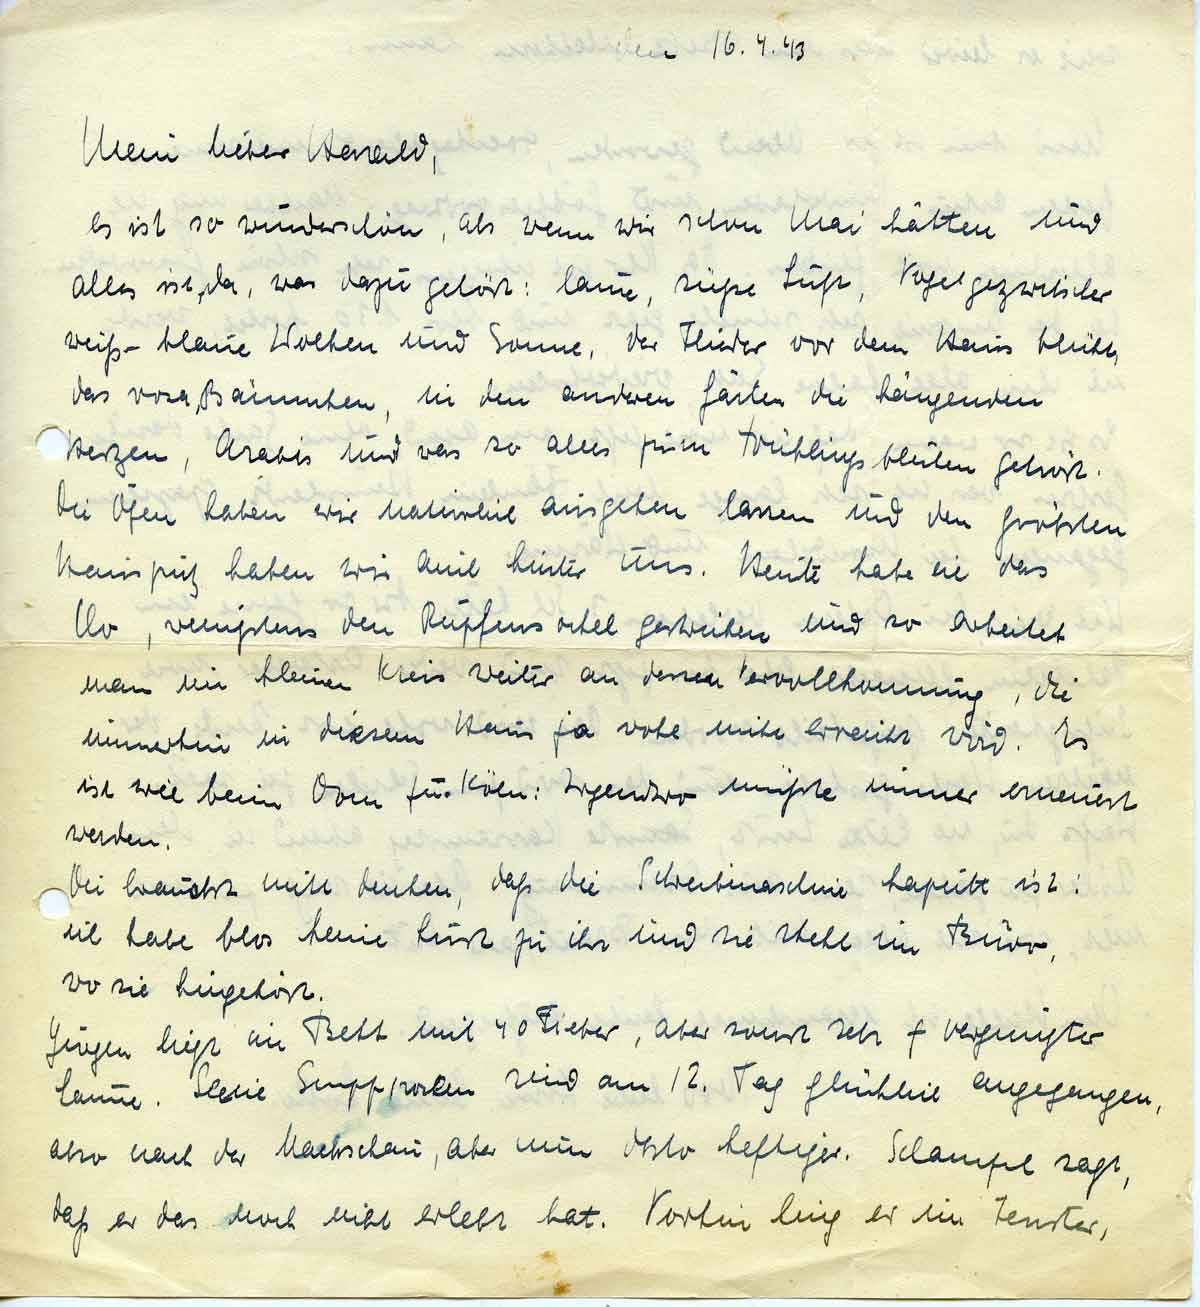 den 16.4.43
Mein lieber Harald,
es ist so wunderschön, als wenn wir schon Mai hätten und
alles ist da, was dazu gehört: laue, süße Luft, Vogelgezwitscher
weiß-blaue Wolken und Sonne, der Flieder vor dem Haus blüht,
das rosa Bäumchen, in den anderen Gärten die hängenden
Herzen, Arabis und was so alles zum Frühlingsblühen gehört.
Die Öfen haben wir natürlich ausgehen lassen und den größten
Hausputz haben wir auch hinter uns. Heute habe ich das
Klo, wenigstens den Rupfensockel gestrichen und so arbeitet
man im kleinen Kreis weiter an dessen Vervollkommnung, die
immerhin in diesem Haus ja nicht erreicht wird. Es
ist wie beim Dom zu Köln: Irgendwo müßte immer erneuert
werden.
Du brauchst nicht denken, daß die Schreibmaschine kaputt ist:
ich habe blos keine Lust zu ihr und sie steht im Büro,
wo sie hingehört.
Jürgen liegt im Bett mit 40 Fieber, aber sonst sehr vergnügter
Laune. Seine Impfpocken sind am 12. Tag glücklich angegangen,
also nach der Nachschau, aber nun desto heftiger. sagt,
daß er das noch nicht erlebt hat. Vorhin hing er im Fenster,